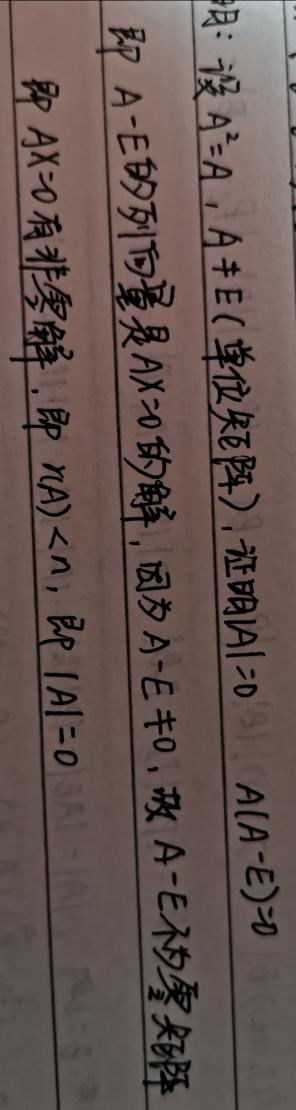 明: 设 A²=A, A≠E(单位矩阵), 证明|A|=0 A(A-E)=0
即 A-E的列向量是AX=0的解, 因为A-E≠0, 故 A-E不为零矩阵
即 AX=0有非零解, 即 r(A)<n, 即 |A|=0